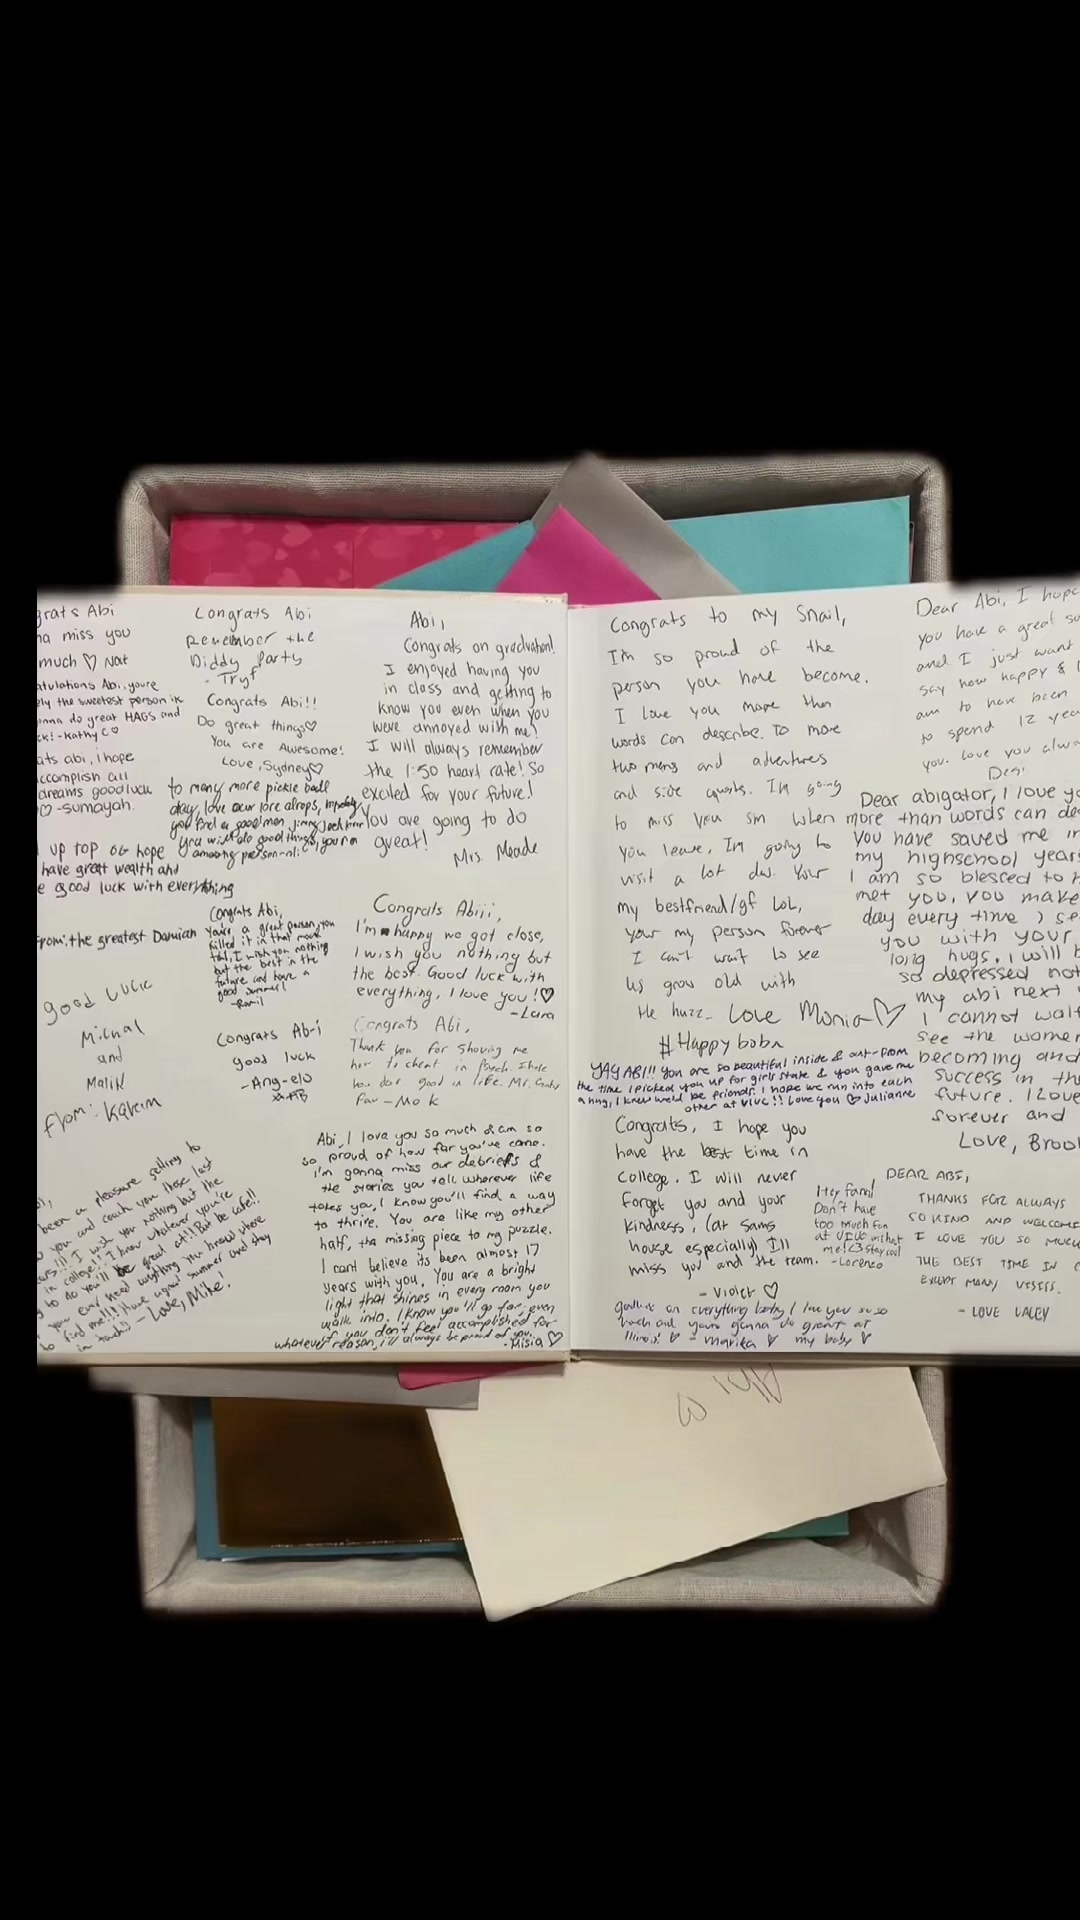 grats Abi
na miss you
much ♡ Nat
atulations Abi, youre
ely the sweetest person ik
onna do great HAGS and
ck! -Kathy C♡
ats abi, i hope
accomplish all
dreams goodluck
♡ -Sumayah.
up top OG hope
have great wealth and
e good luck with everything
From: the greatest Damian
good luck
Michal
and
Malik
from: Kareem
been a pleasure getting to
you and coach you these last
ears!!! I wish you nothing but the
in college!! I know whatever you're
to do you'll be great at!! But be safe!!
you ever need anything you know where
find me!!! Have a great summer and stay
in touch!! - Love, Mike!
Congrats Abi
Remember the
Diddy Party
- Tryf
Congrats Abi!!
Do great things♡
You are Awesome!
Love, Sydney♡
to many more pickle ball
days, love our lore drops,
you find a good man,
you will do good things, you're
amazing person-nli
Congrats Abi,
You're a great person, you
killed it in that mock
trial, I wish you nothing
but the best in the
future and have a
good summer!
-Ramil
Congrats Ab-i
good luck
-Ang-elo
Abi,
Congrats on graduation!
I enjoyed having you
in class and getting to
know you even when you
were annoyed with me!
I will always remember
the 1:50 heart rate! So
excited for your future!
You are going to do
great!
Mrs. Meade
Congrats Abiii,
I'm happy we got close,
I wish you nothing but
the best. Good luck with
everything, I love you!♡
- Lara
Congrats Abi,
Thank you for showing me
how to cheat in psych. I hope
you do good in life. Mr.
Fav - Mo K
Abi, I love you so much & am so
so proud of how far you've come.
I'm gonna miss our debriefs &
the stories you tell. Wherever life
takes you, I know you'll find a way
to thrive. You are like my other
half, the missing piece to my puzzle.
I cant believe its been almost 17
years with you. You are a bright
light that shines in every room you
walk into. I know you'll go far; even
if you don't feel accomplished for
whatever reason, i'll always be proud of you.
-Misia ♡
Congrats to my Snail,
I'm so proud of the
person you have become.
I love you more then
words can describe. To more
two mans and adventures
and side quests. I'm going
to miss you sm when
you leave, I'm going to
visit a lot dw. Your
my bestfriend/gf LOL,
your my person forever
I can't wait to see
us grow old with
the huzz. Love Monia♡
#Happyboba
YAY ABI!! You are so beautiful inside & out - from
the time I picked you up for girls state & you gave me
a hug, I knew we'd be friends. I hope we run into each
other at UIUC!! Love you ♡ Julianne
Congrats, I hope you
have the best time in
college. I will never
forget you and your
kindness, (at Sams
house especially) I'll
miss you and the team.
- Violet ♡
goodluck on everything baby I love you so so
much and youre gonna do great at
Illinois! ♡ - Marika ♡ my baby ♡
Hey fam!
Don't have
too much fun
at UIUC without
me! <3 stay cool
-Lorenzo
Dear Abi, I hope
you have a great su
and I just want
say how happy & l
am to have been
to spend 12 yea
you. Love you alwa
Desi
Dear abigator, I love yo
more than words can de
you have saved me in
my highschool years
I am so blessed to h
met you, you make
day every time I se
you with your
long hugs. I will b
so depressed not
my abi next
I cannot wait
see the women
becoming and
success in the
future. I Love
forever and
Love, Brook
DEAR ABI,
THANKS FOR ALWAYS
SO KIND AND WELCOMI
I LOVE YOU SO MUCH
THE BEST TIME IN C
EXPECT MANY VISITS.
- LOVE VALEY
Abi M